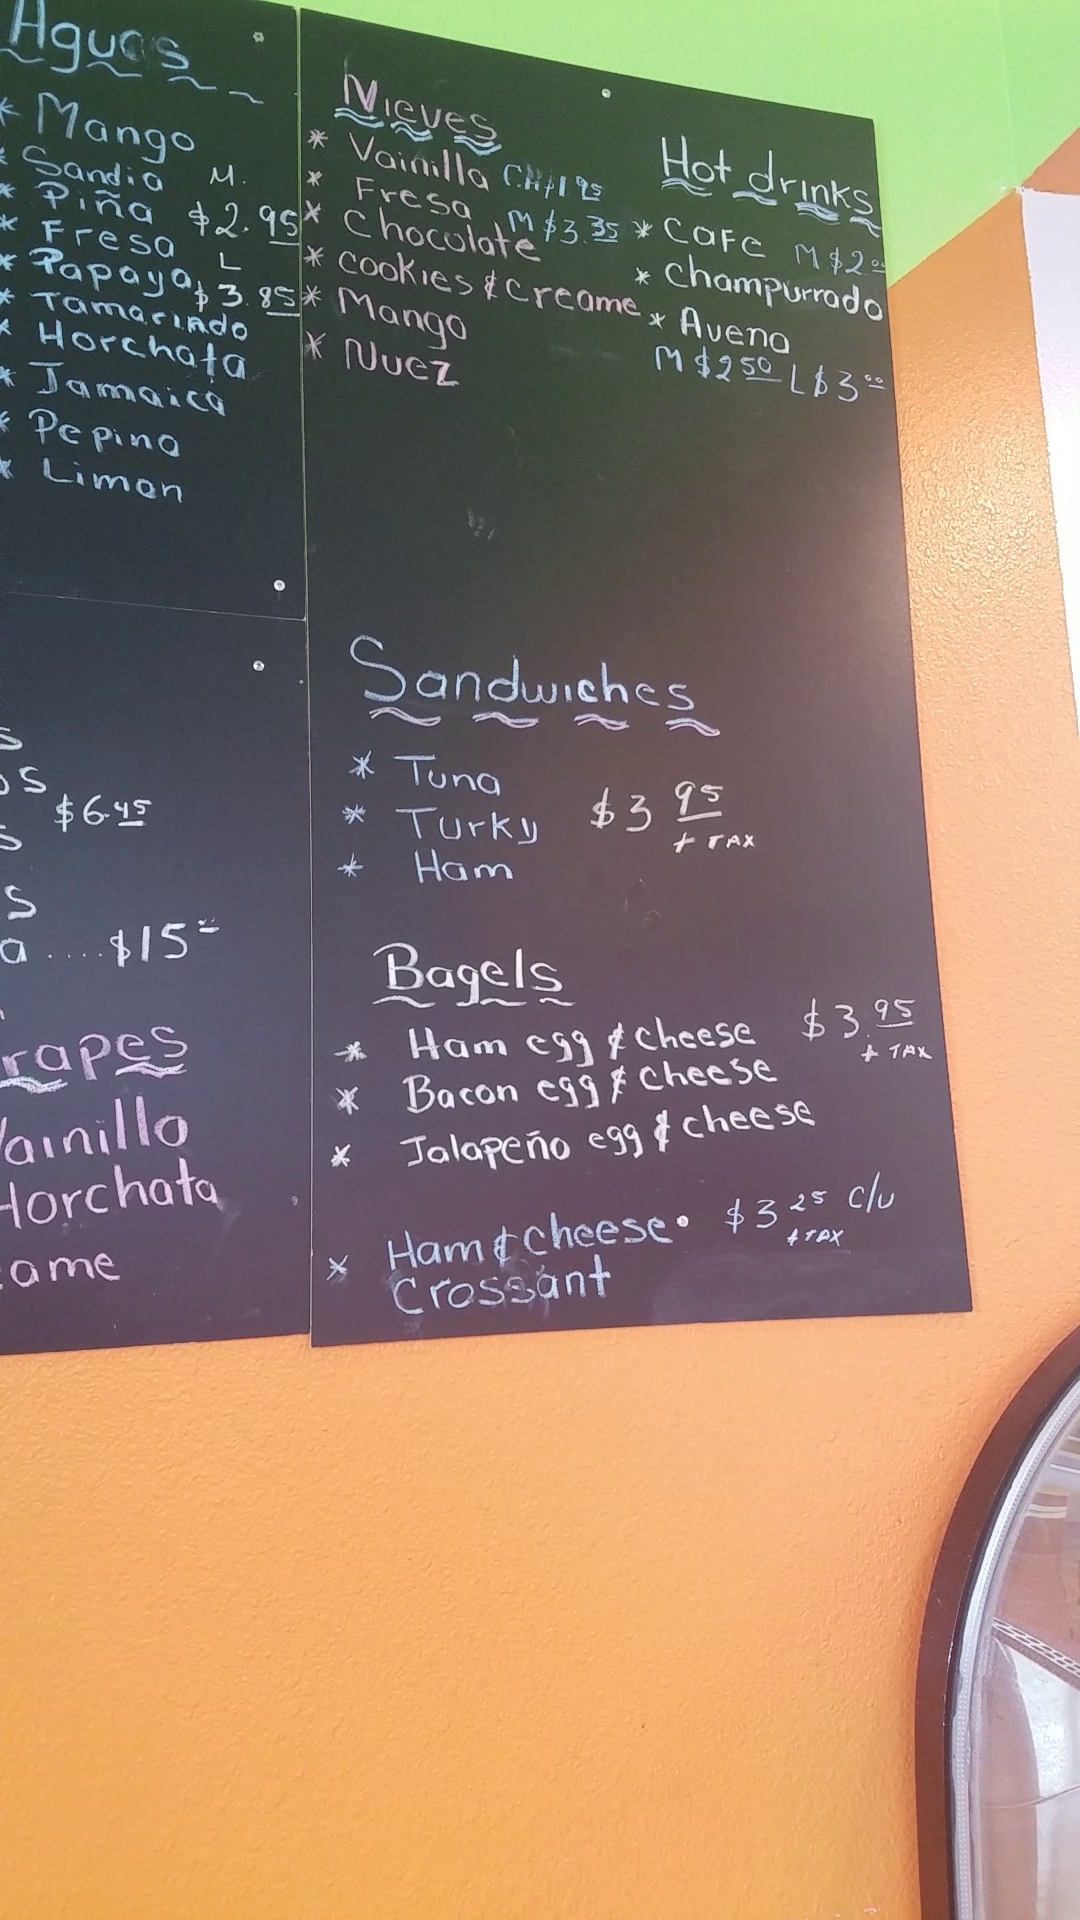 Aguas
* Mango
* Sandia M.
* Piña $2.95
* Fresa L
* Papaya $3.85
* Tamarindo
* Horchata
* Jamaica
* Pepino
* Limon
$6.45
$15
Vainilla
Horchata
Nieves
* Vainilla CH $1.95
* Fresa M $3.35
* Chocolate
* Cookies & creame
* Mango
* Nuez
Hot drinks
* CaFe M $2.00
* Champurrado
* Avena
M $2 50 L $3 00
Sandwiches
* Tuna
* Turky $3 95 + TAX
* Ham
Bagels
* Ham egg & cheese $3.95 + TAX
* Bacon egg & cheese
* Jalapeño egg & cheese
* Ham & cheese $3 25 c/u
Crossant + TAX